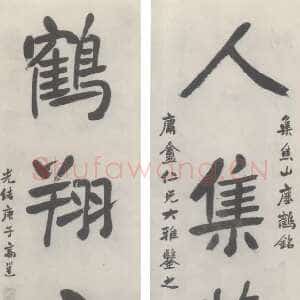 集焦山瘞鶴銘
人集
庸盦仁兄大雅鑒之
鶴翔
光緒庚子高邕
Shufawang.CN